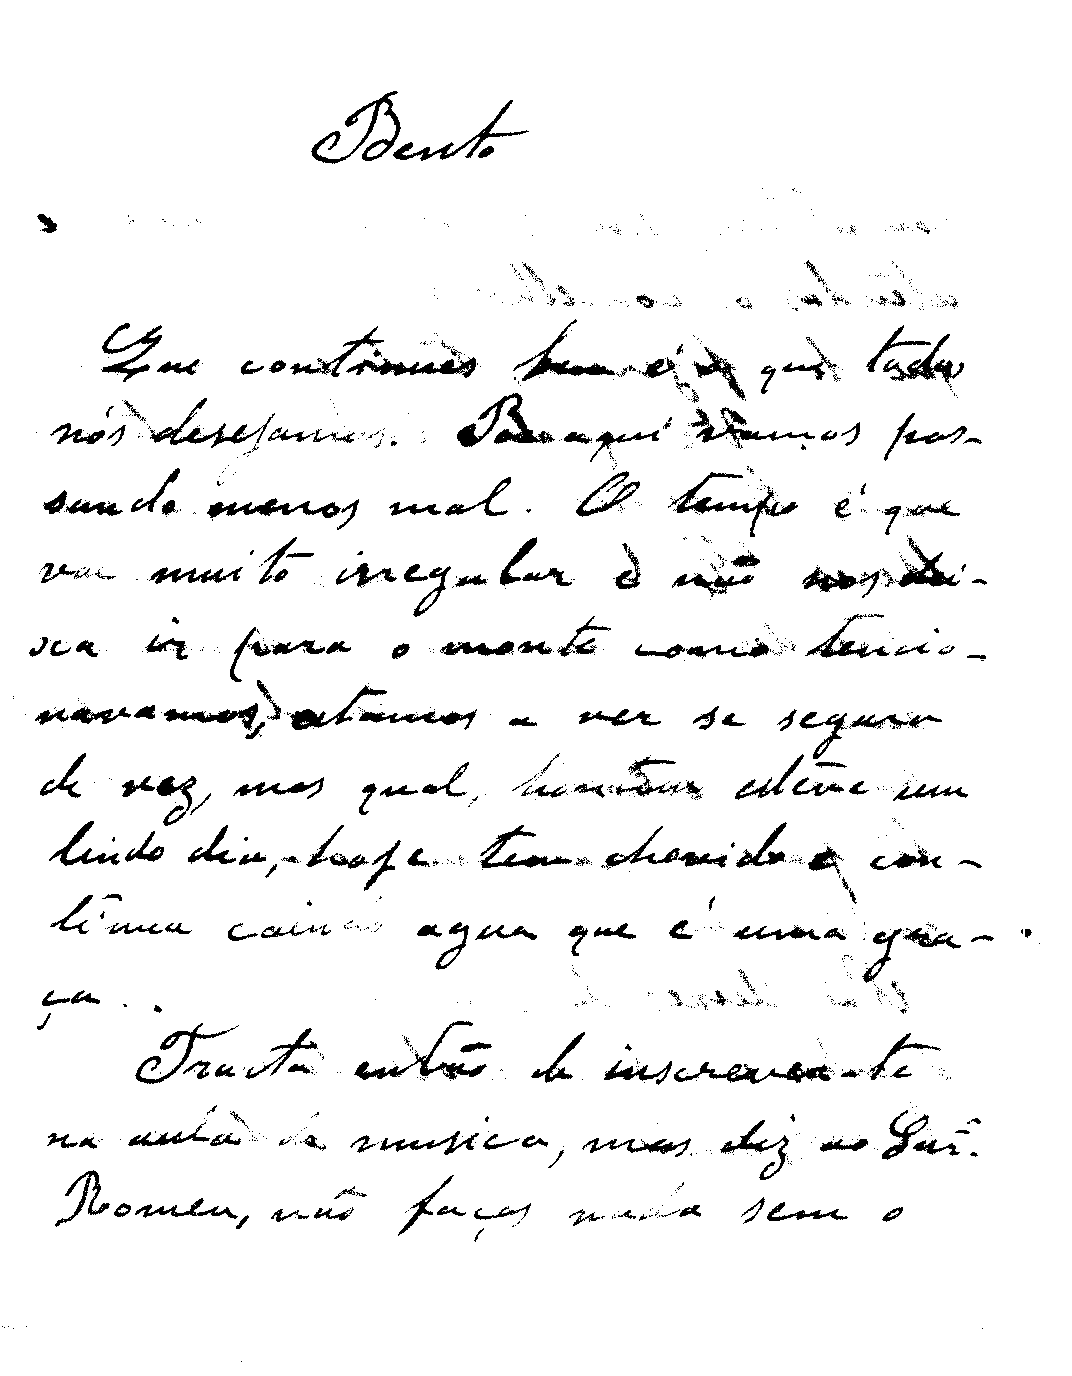 Bento
Que continues bem é o que todos
nós desejamos. Por aqui vamos pas-
sando menos mal. O tempo é que
vae muito irregular e não nos dei-
xa ir para o monte como tencio-
navamos, estamos a ver se segura
de vez, mas qual, hontem esteve um
lindo dia, hoje tem chovido e con-
tinua caindo agua que é uma gra-
ça.
Tracta então de inscrever-te
na aula de musica, mas diz ao Snr.
Romeu, não faças nada sem o